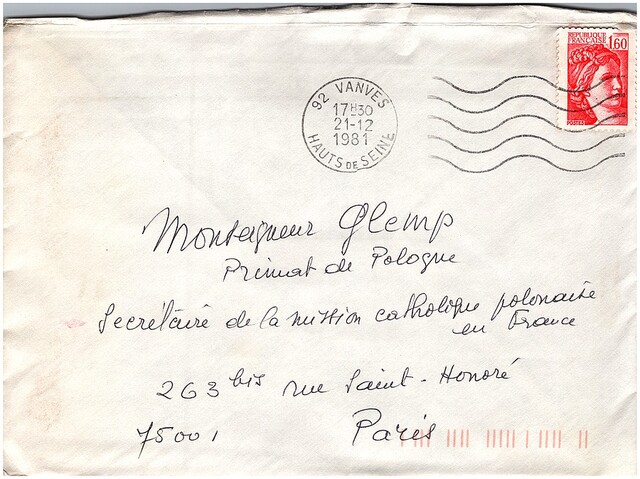 REPUBLIQUE
FRANÇAISE 1,60
92 VANVES
17H30
21-12
1981
HAUTS DE SEINE
Monseigneur Glemp
Primat de Pologne
Secrétaire de la mission catholique polonaise
en France
263 bis rue Saint-Honoré
75001 Paris